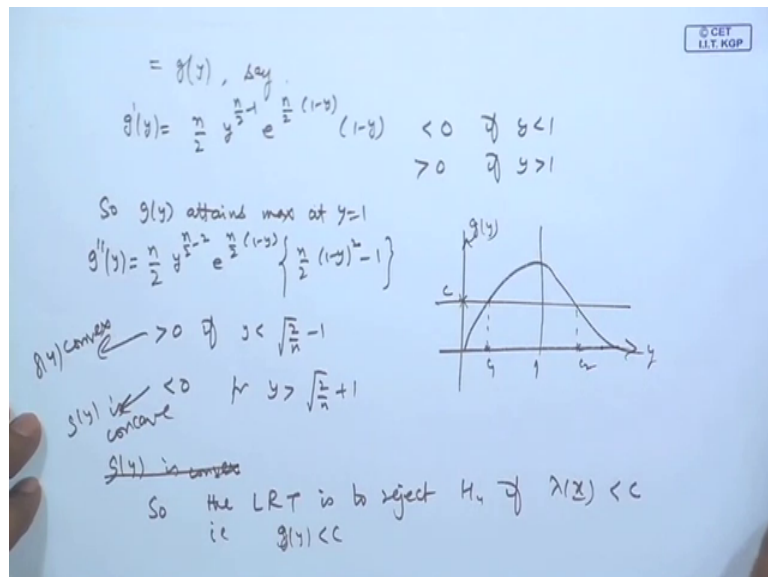 © CET
I.I.T. KGP
= g(y), say.
g'(y) = n/2 y^(n/2 - 1) e^(n/2 (1-y)) (1-y) < 0 if y < 1
> 0 if y > 1
So g(y) attains max at y=1
g''(y) = n/2 y^(n/2 - 2) e^(n/2 (1-y)) { n/2 (1-y)^2 - 1 }
g(y) convex > 0 if y < √(2/n) - 1
g(y) is concave < 0 for y > √(2/n) + 1
g(y) is convex
g(y)
c
c₁ 1 c₂ y
So the LRT is to reject H₄ if λ(x) < c
ie g(y) < c